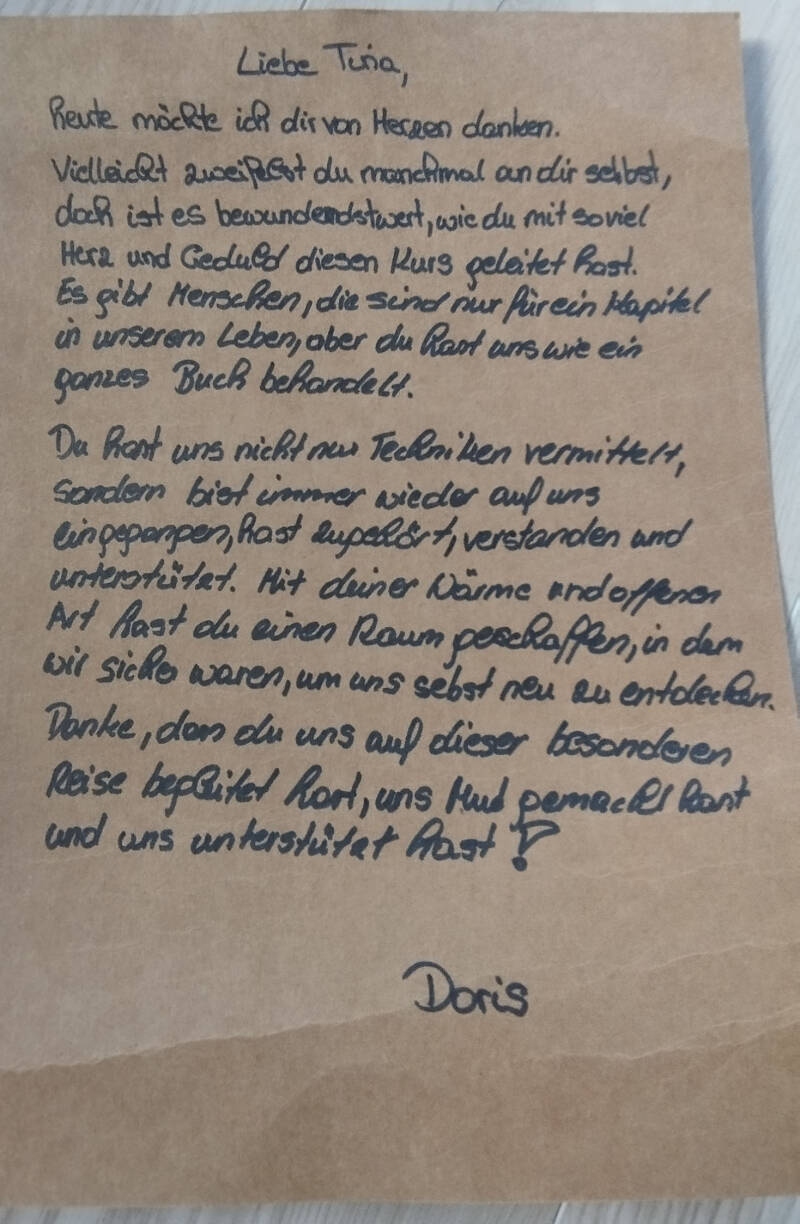 Liebe Tina,
heute möchte ich dir von Herzen danken.
Vielleicht zweifelst du manchmal an dir selbst,
doch ist es bewundendstwert, wie du mit soviel
Herz und Geduld diesen Kurs geleitet hast.
Es gibt Menschen, die sind nur für ein Kapitel
in unserem Leben, aber du hast uns wie ein
ganzes Buch behandelt.
Du hast uns nicht nur Techniken vermittelt,
sondern bist immer wieder auf uns
eingegangen, hast zugehört, verstanden und
unterstützt. Mit deiner Wärme und offenen
Art hast du einen Raum geschaffen, in dem
wir sicher waren, um uns sebst neu zu entdecken.
Danke, dass du uns auf dieser besonderen
Reise begleitet hast, uns Mut gemacht hast
und uns unterstützt hast!
Doris